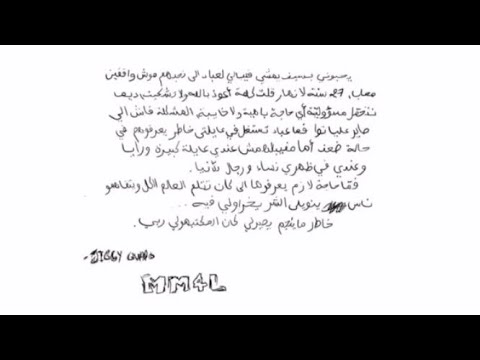 يحبوني بسيف نمشي فيبالي لعباد الي نحبهم موش واقفين
معايا، 27 سنة لا نهار قلت كلمة أعوذ بالله ولا تشكيت، ديما
نتحمل مسؤوليّة أي حاجة باهية ولا خايبة، المشكلة فاش الي
صاير عليا توا فما عباد تستغل في عايلتي خاطر يعرفوهم في
حالة ضعف أما منيش عندي عايلة كبيرة ورايا
وعندي في ظهري نساء و رجال دنيا.
فما حاجة لازم يعرفوها الي كان تتلم العالم الكل
ناس ينويلي الشر فيه ...
خاطر ما ينجم يجبرني كان المكتبهولي ربي.
- JIGGY
MM4L